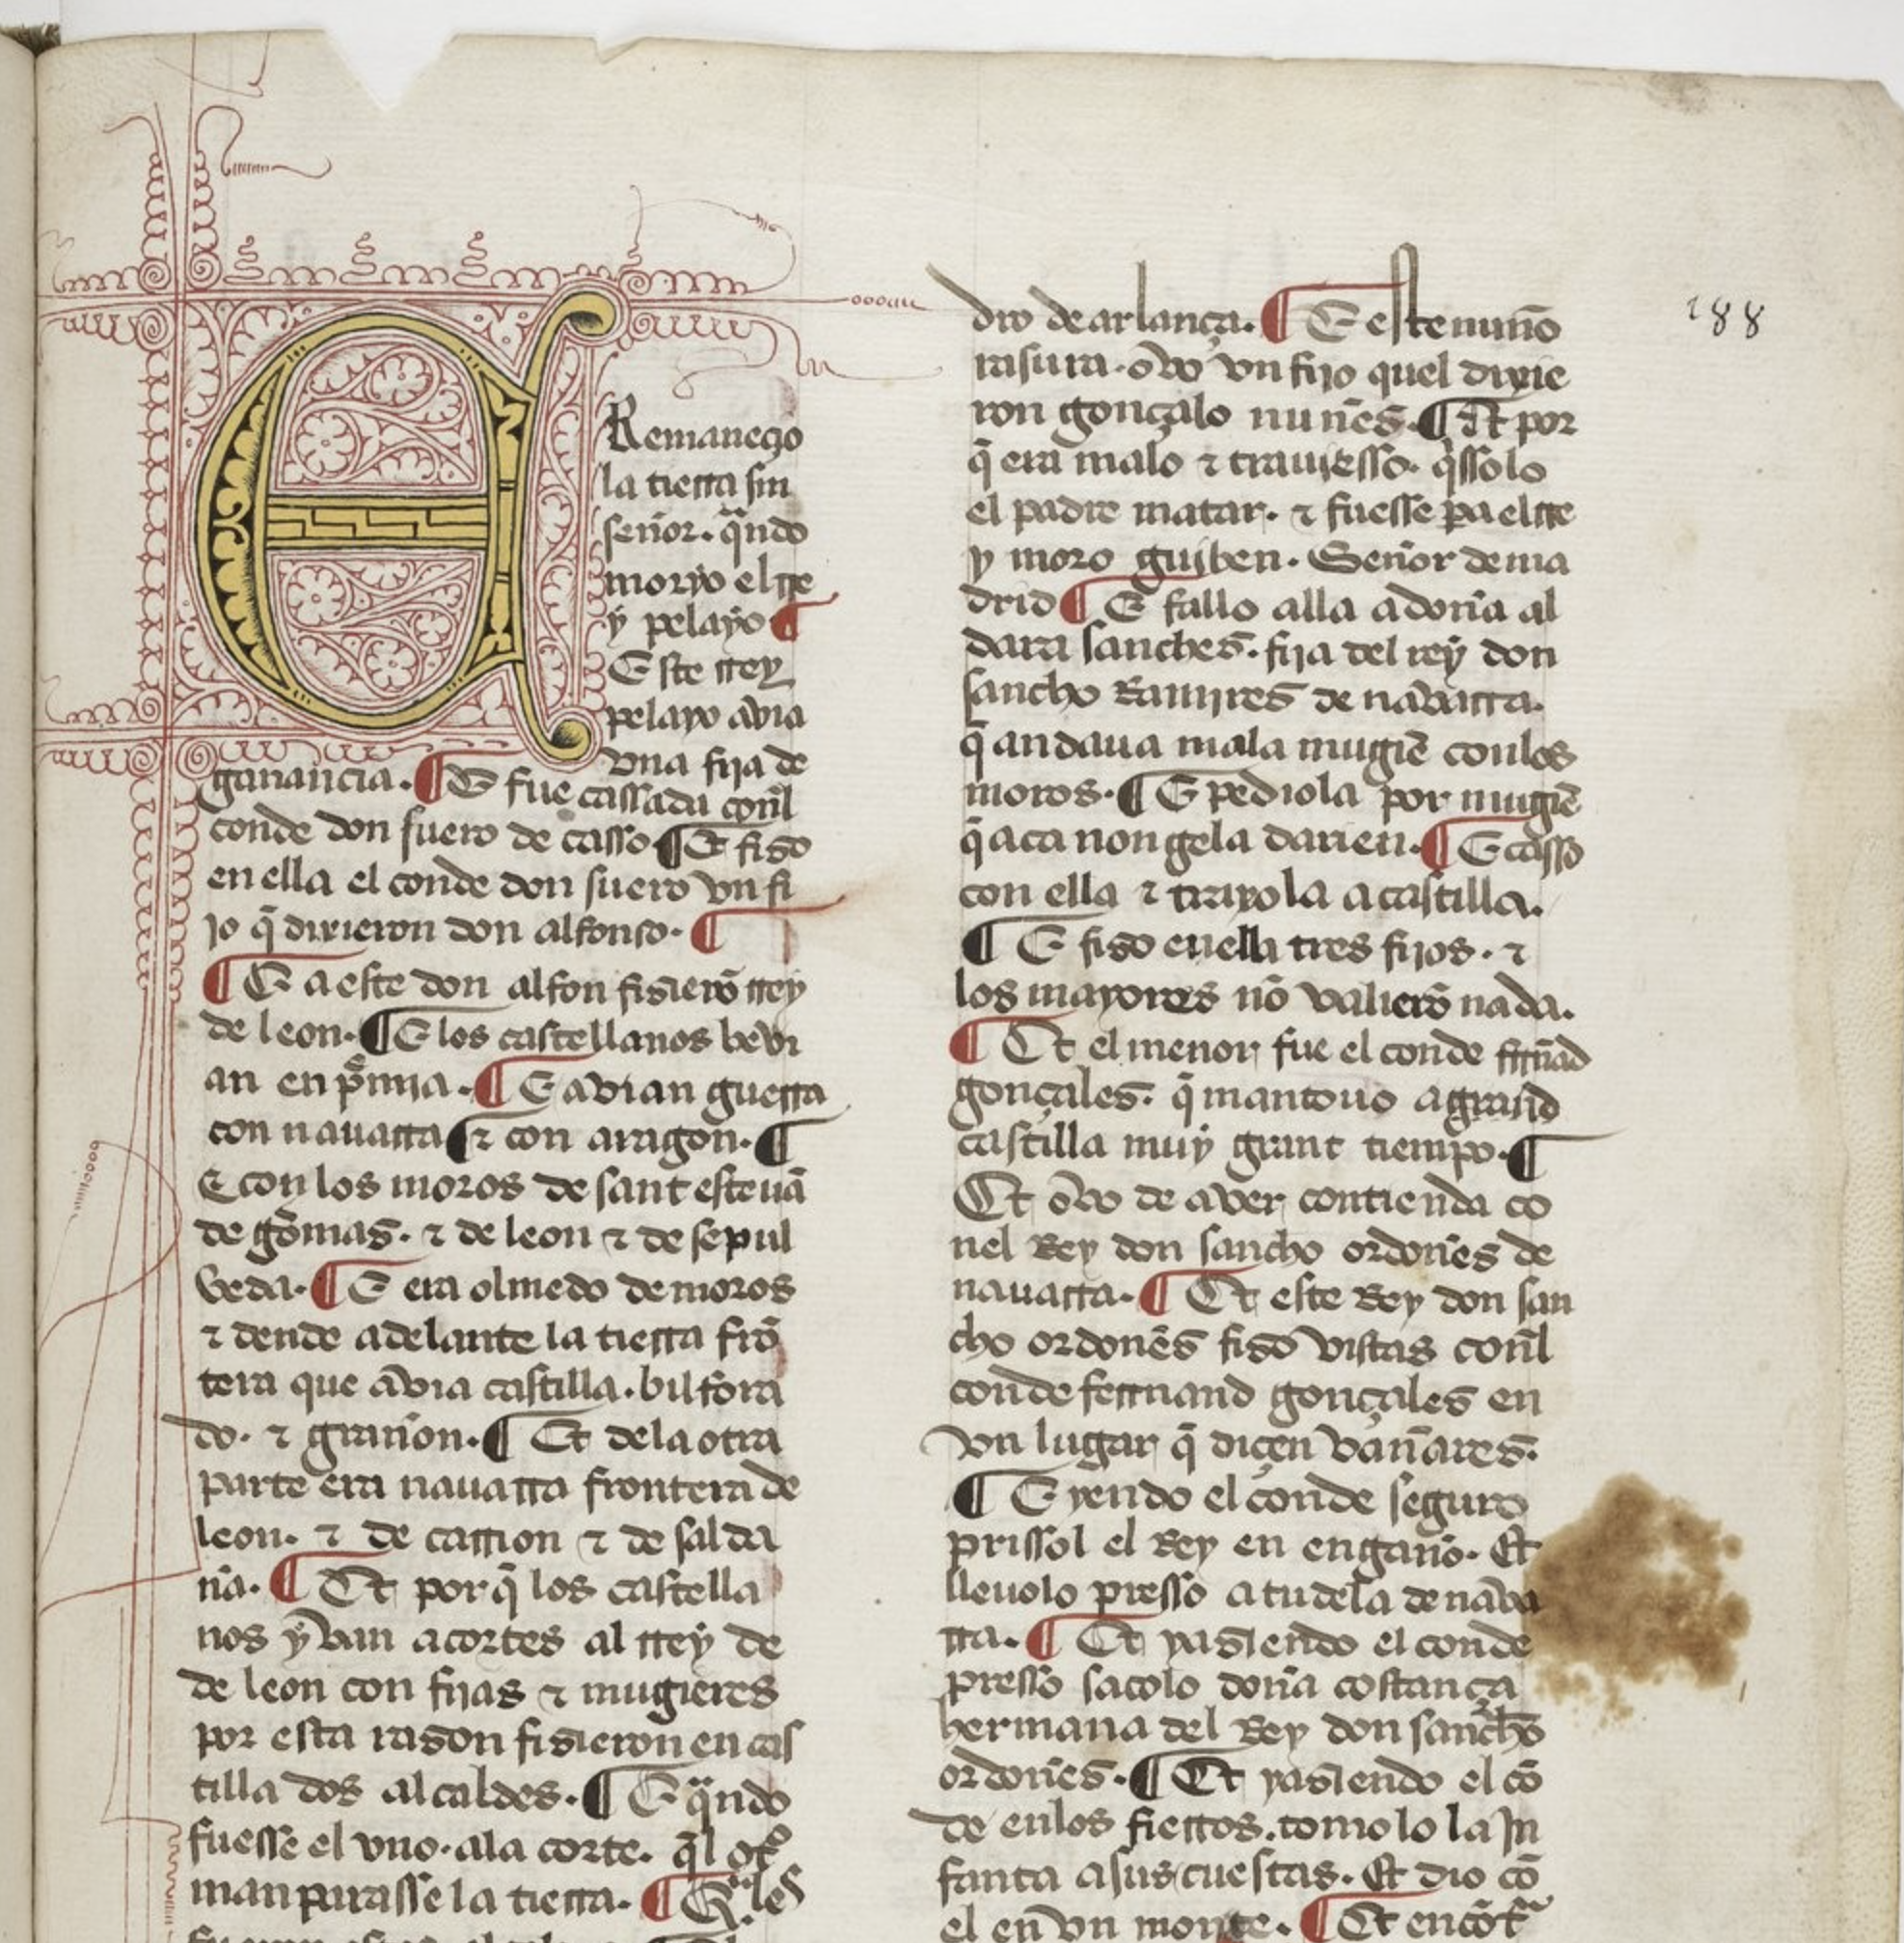 E
Remaneçio
la tierra sin
señor. qͣndo
moryo el rre
y pelayo ¶
Este rrey
pelayo avia
vna fija de
ganançia. ¶ E fue cassada conl̃
conde don suero de casso ¶ Et fiso
en ella el conde don suero vn fi
jo q̃ dixieron don alfonso. ¶
¶ E a este don alfon fisierõ rrey
de leon. ¶ E los castellanos bevi
an en p̃mia. ¶ E avian guerra
con nauarra ¶ ⁊ con aragon. ¶
E con los moros de sant esteuã
de gõmas. ⁊ de leon ⁊ de sepul
veda. ¶ E era olmedo de moros
⁊ dende adelante la tierra frõ
tera que avia castilla. bilfora
do. ⁊ grañon. ¶ Et de la otra
parte era nauarra frontera de
leon. ⁊ de carrion ⁊ de salda
ña. ¶ Et por q̃ los castella
nos yvan a cortes al rrey de
de leon con fijas ⁊ mugieres
por esta rason fisieron en cas
tilla dos alcaldes. ¶ E qͣndo
fuesse el vno. ala corte. q̃l ot̊
manparasse la tierra. ¶ Qͣles
188
dro de arlança. ¶ E este nuño
rasura. ovo vn fijo quel dixie
ron gonçalo nuñes. ¶ Et por
q̃ era malo ⁊ trauiesso. q̃ssolo
el padre matar. ⁊ fuesse pa el rre
y moro guiben. Señor de ma
drid ¶ E fallo alla a doña al
dara sanches. fija del rey don
sancho Ramires de navarra.
q̃ andaua mala mugiẽ con los
moros. ¶ E pediola por mugiẽ
q̃ aca non gela darien. ¶ E casso
con ella ⁊ traxola a castilla.
¶ E fiso en ella tres fijos. ⁊
los mayores nõ valierõ nada.
¶ Et el menor fue el conde ferrñad
gonçales. q̃ mantouo a grand
castilla muy grant tiempo. ¶
Et ovo de aver contienda co
nel Rey don sancho ordoñes de
nauarra. ¶ Et este Rey don san
cho ordoñes fiso vistas conl̃
conde ferrnand gonçales en
vn lugar q̃ diçen vañares.
¶ E yendo el conde seguro
prissol el Rey en engaño. Et
lleuolo presso a tudela de nava
rra. ¶ Et yasiendo el conde
presso sacolo doña costança
hermana del Rey don sancho
ordoñes. ¶ Et yasiendo el cõ
de en los fierros. tomolo la In
fanta a sus cuestas. Et dio cõ
el en vn monte. ¶ Et encõtͣ